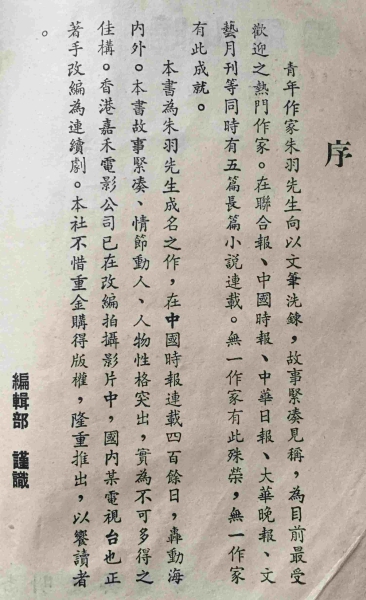 序
青年作家朱羽先生向以文筆洗鍊，故事緊凑見稱，為目前最受
歡迎之熱門作家。在聯合報、中國時報、中華日報、大華晚報、文
藝月刊等同時有五篇長篇小說連載。無一作家有此殊榮，無一作家
有此成就。
本書為朱羽先生成名之作，在中國時報連載四百餘日，轟動海
內外。本書故事緊凑、情節動人、人物性格突出，實為不可多得之
佳構。香港嘉禾電影公司已在改編拍攝影片中，國內某電視台也正
著手改編為連續劇。本社不惜重金購得版權，隆重推出，以饗讀者
。
編輯部 謹識